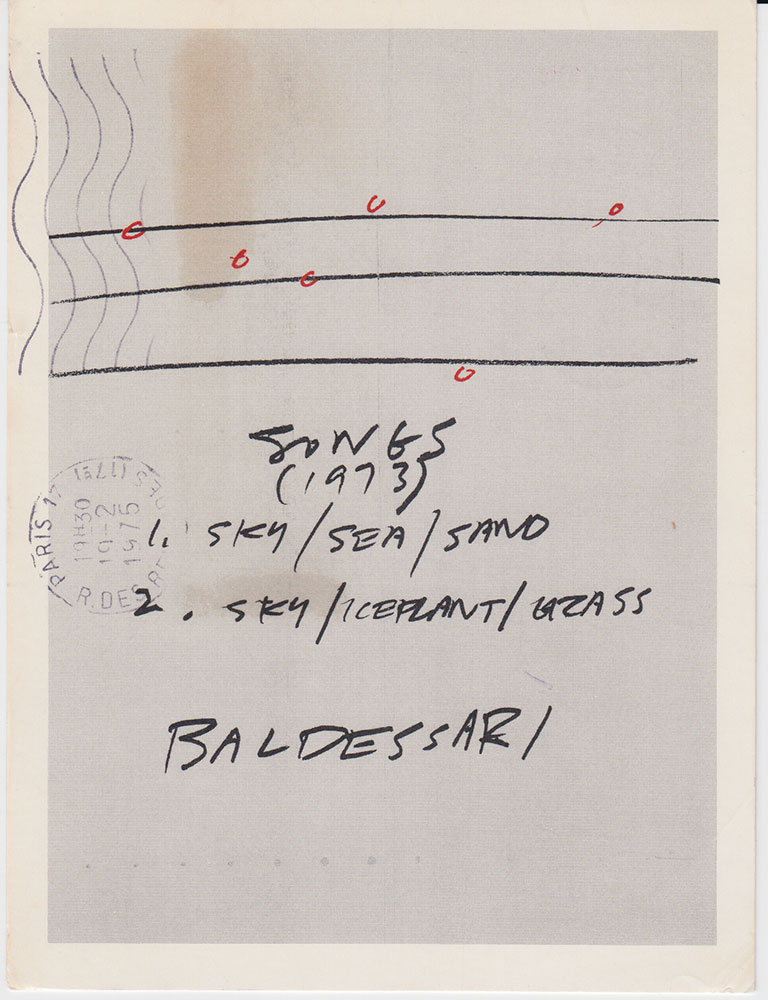 SONGS
(1973)
1. SKY/SEA/SAND
2. SKY/ICEPLANT/GRASS
BALDESSARI
PARIS
19H30
19-2
1975
R.DES